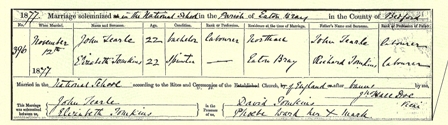 1877. Marriage solemnized in the National School in the Parish of Eaton Bray in the County of Bedford
No. When Married. Name and Surname. Age. Condition. Rank or Profession. Residence at the time of Marriage. Father's Name and Surname. Rank or Profession of Father.
396 November John Searle 22 bachelor labourer Northall John Searle labourer
1877 Elizabeth Tomkins 22 Spinster Eaton Bray Richard Tomkins labourer
Married in the National School according to the Rites and Ceremonies of the Established Church, of England after banns by me,
This Marriage was solemnized between us, John Searle Elizabeth Tomkins in the Presence of us, David Tomkins Phoebe her X mark